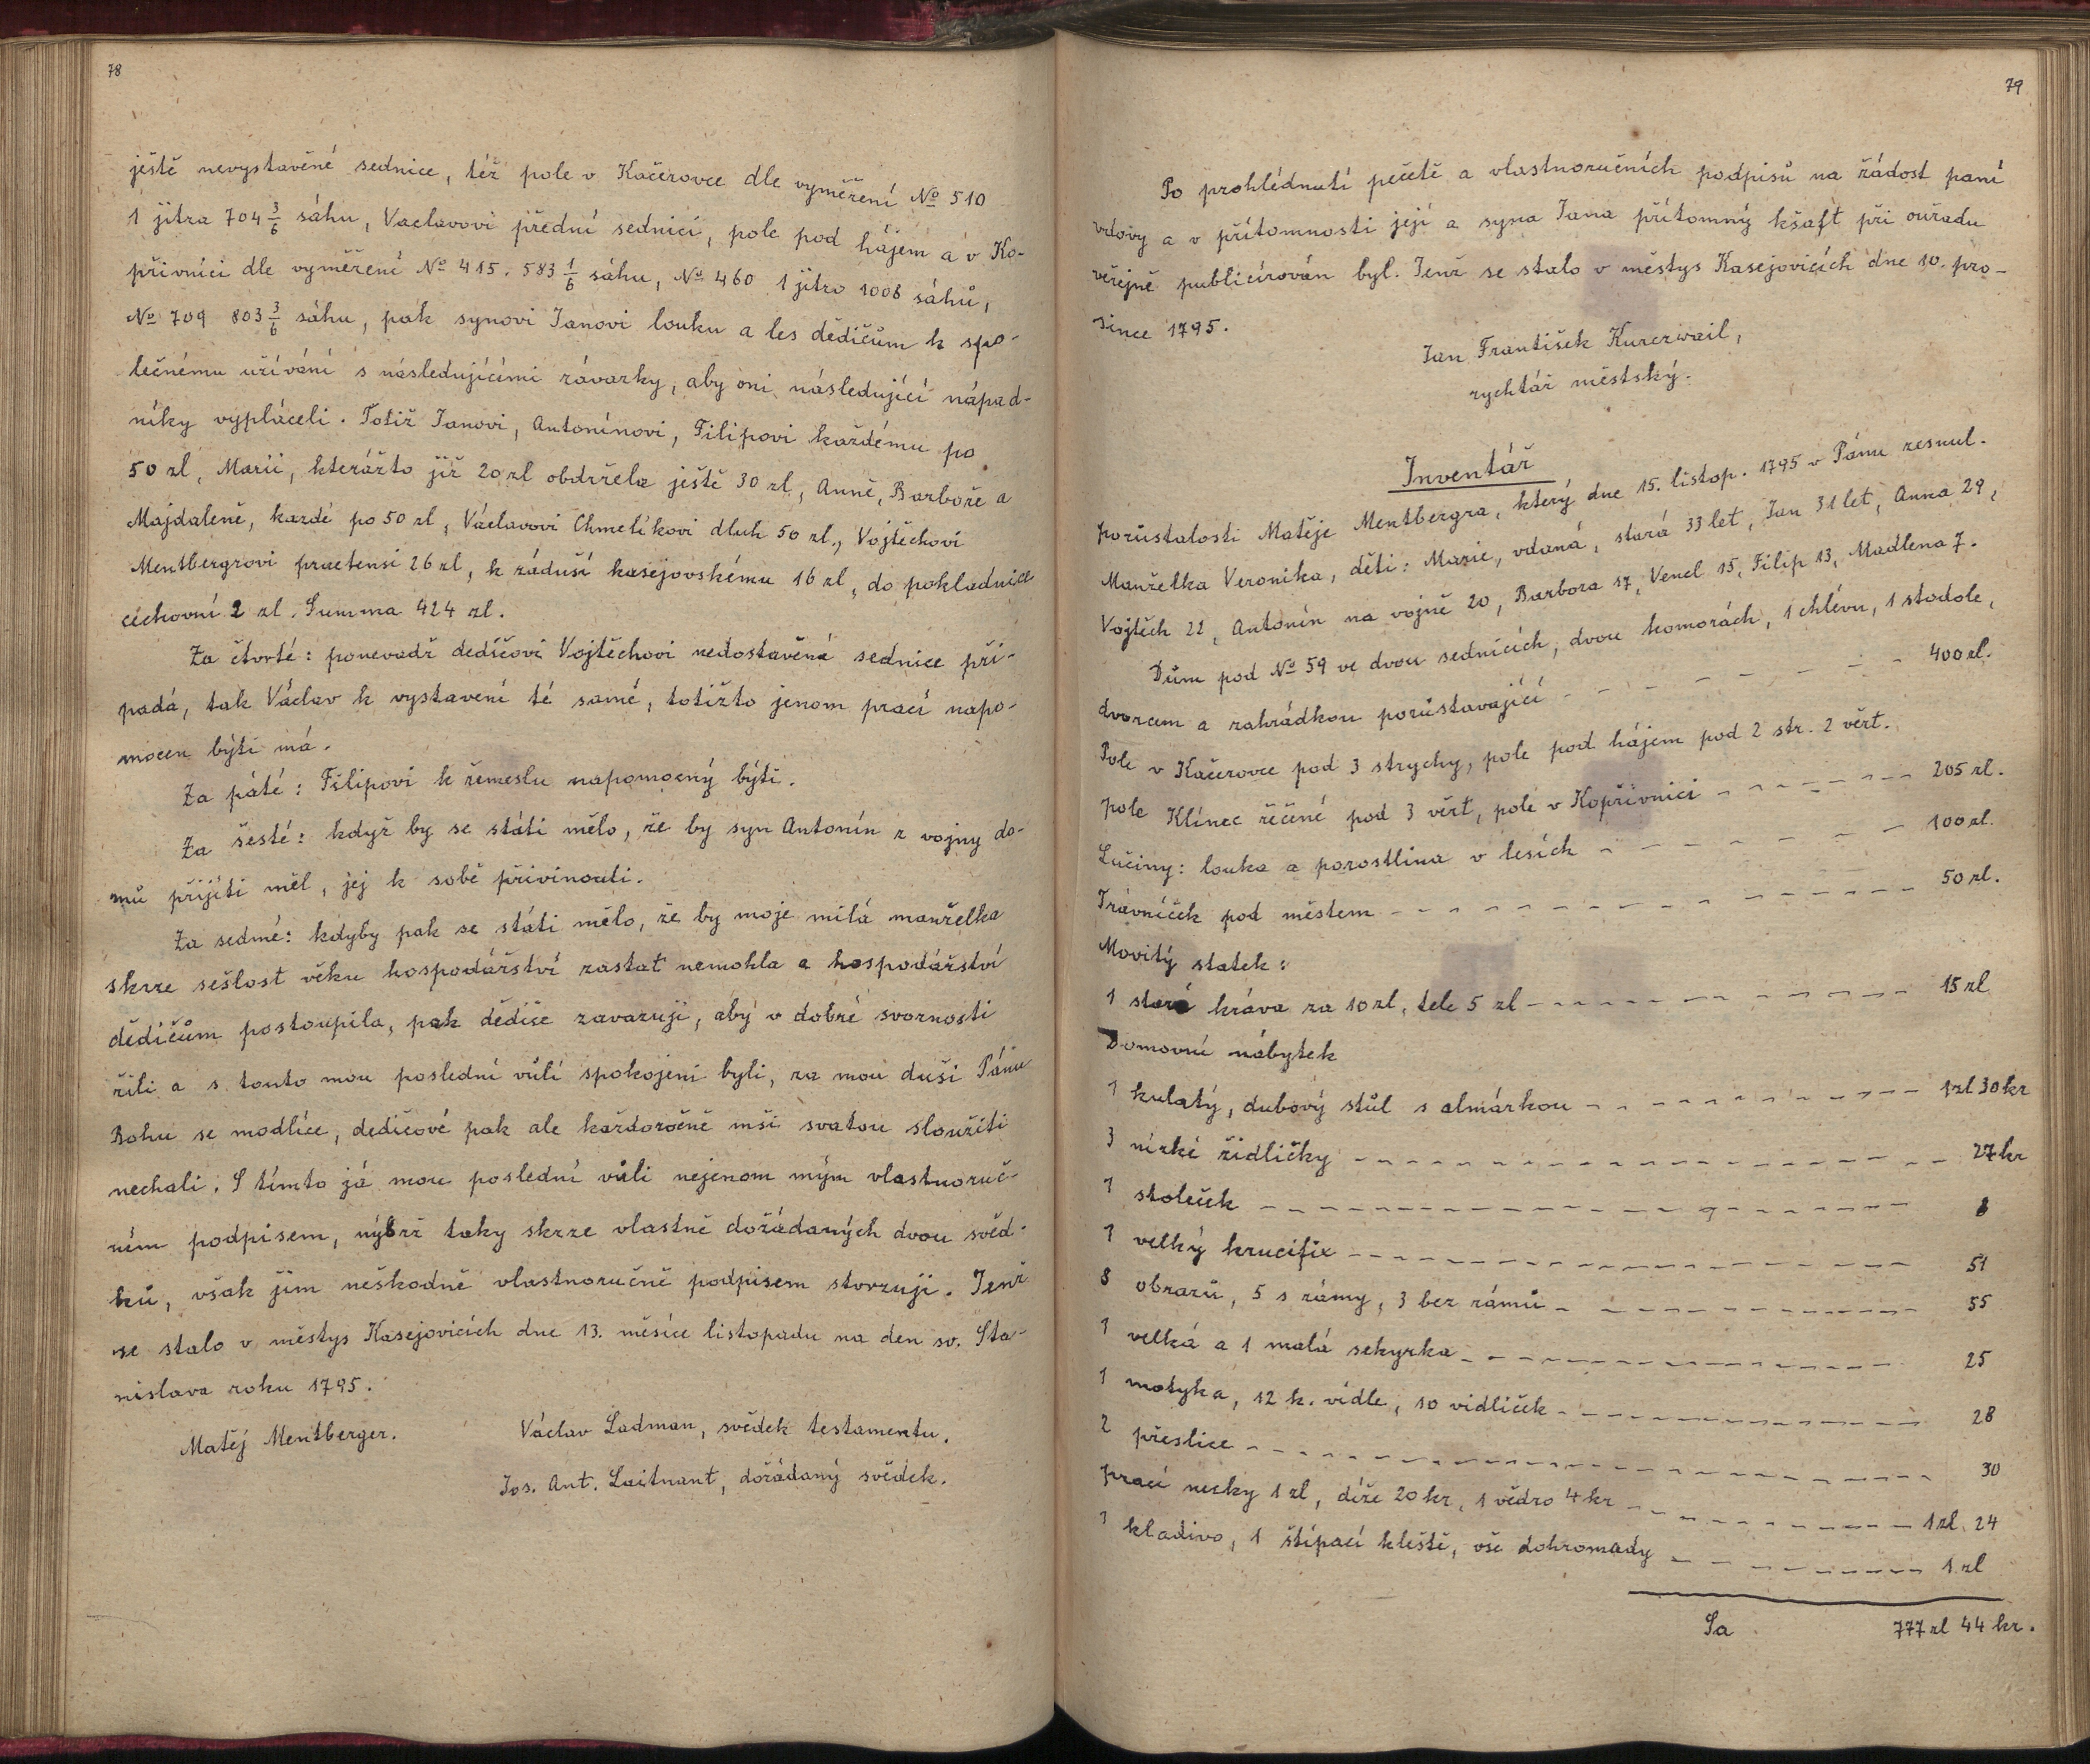 78
ještě nevystavěné sednice, též pole v Kačerovce dle vyměření No 510
1 jitra 704 3/6 sáhu, Vaclavovi přední sednici, pole pod hájem a v Ko-
přivnici dle vyměření No 415. 583 1/6 sáhu, No 460 1 jitro 1006 sáhů,
No 709 803 3/6 sáhu, pak synovi Janovi louku a les dědičům k spo-
lečnému užívání s následujícími závazky, aby oni následující nápad-
níky vypláceli. Totiž Janovi, Antonínovi, Filipovi každému po
50 zl, Marii, kterážto již 20 zl obdržela ještě 30 zl, Anně, Barboře a
Majdaleně, každé po 50 zl, Václavovi Chmelíkovi dluh 50 zl., Vojtěchovi
Mentbergrovi praetensi 26 zl, k záduší kasejovskému 16 zl, do pokladnice
cechovní 2 zl. Summa 424 zl.
Za čtvrté: ponevadž dedičovi Vojtěchovi nedostavěná sednice při-
padá, tak Václav k vystavení té samé, totižto jenom prací napo-
mocen býti má.
Za páté: Filipovi k řemeslu napomocný býti.
Za šesté: když by se státi mělo, že by syn Antonín z vojny do-
mů přijíti měl, jej k sobě přivinouti.
Za sedmé: kdyby pak se státi mělo, že by moje milá manželka
skrze sešlost věku hospodářství zastat nemohla a hospodářství
dědičům postoupila, pak dědice zavazuji, aby v dobré svornosti
žili a s touto mou poslední vůlí spokojeni byli, za mou duši Pánu
Bohu se modlíce, dedičové pak ale každoročně mši svatou sloužiti
nechali. S tímto já mou poslední vůli nejenom mým vlastnoruč-
ním podpisem, nýbrž taky skrze vlastně dožádaných dvou svěd-
ků, však jim neškodně vlastnoručně podpisem stvrzuji. Jenž
se stalo v městys Kasejovicích dne 13. měsíce listopadu na den sv. Sta-
nislava roku 1795.
Matěj Mentberger.
Václav Ladman, svědek testamentu.
Jos. Ant. Laitnant, dožádaný svědek.
79
Po prohlédnutí pečetě a vlastnoručních podpisů na žádost paní
vdovy a v přítomnosti její a syna Jana přítomný kšaft při ouřadu
veřejně publicírován byl. Jenž se stalo v městys Kasejovicích dne 10. pro-
since 1795.
Jan František Kurzwail,
rychtář městský.
Inventář
pozůstalosti Matěje Mentbergra, který dne 15. listop. 1795 v Pánu zesnul.
Manželka Veronika, děti: Marie, vdaná, stará 33 let, Jan 31 let, Anna 29,
Vojtěch 22, Antonín na vojně 20, Barbora 17, Vencl 15, Filip 13, Madlena 7.
Dům pod No 59 ve dvou sednicích, dvou komorách, 1 chlévu, 1 stodole,
dvorcem a zahrádkou pozůstavající 400 zl.
Pole v Kačerovce pod 3 strychy, pole pod hájem pod 2 str. 2 věrt.
pole Klínec řečené pod 3 věrt, pole v Kopřivnici 205 zl.
Lučiny: louka a porostlina v lesích 100 zl.
Trávníček pod městem 50 zl.
Movitý statek:
1 stará kráva za 10 zl, tele 5 zl 15 zl
Domovní nábytek
1 kulatý, dubový stůl s almárkou 1 zl 30 kr
3 nízké židličky 27 kr
1 stoleček 8
1 velký krucifix 51
8 obrazů, 5 s rámy, 3 bez rámů 55
1 velká a 1 malá sekyrka 25
1 motyka, 12 k. vidle, 10 vidliček 28
2 přeslice 30
prací necky 1 zl, díže 20 kr, 1 vědro 4 kr 1 zl 24
1 kladivo, 1 štípací kleště, vše dohromady 1 zl
Sa 777 zl 44 kr.